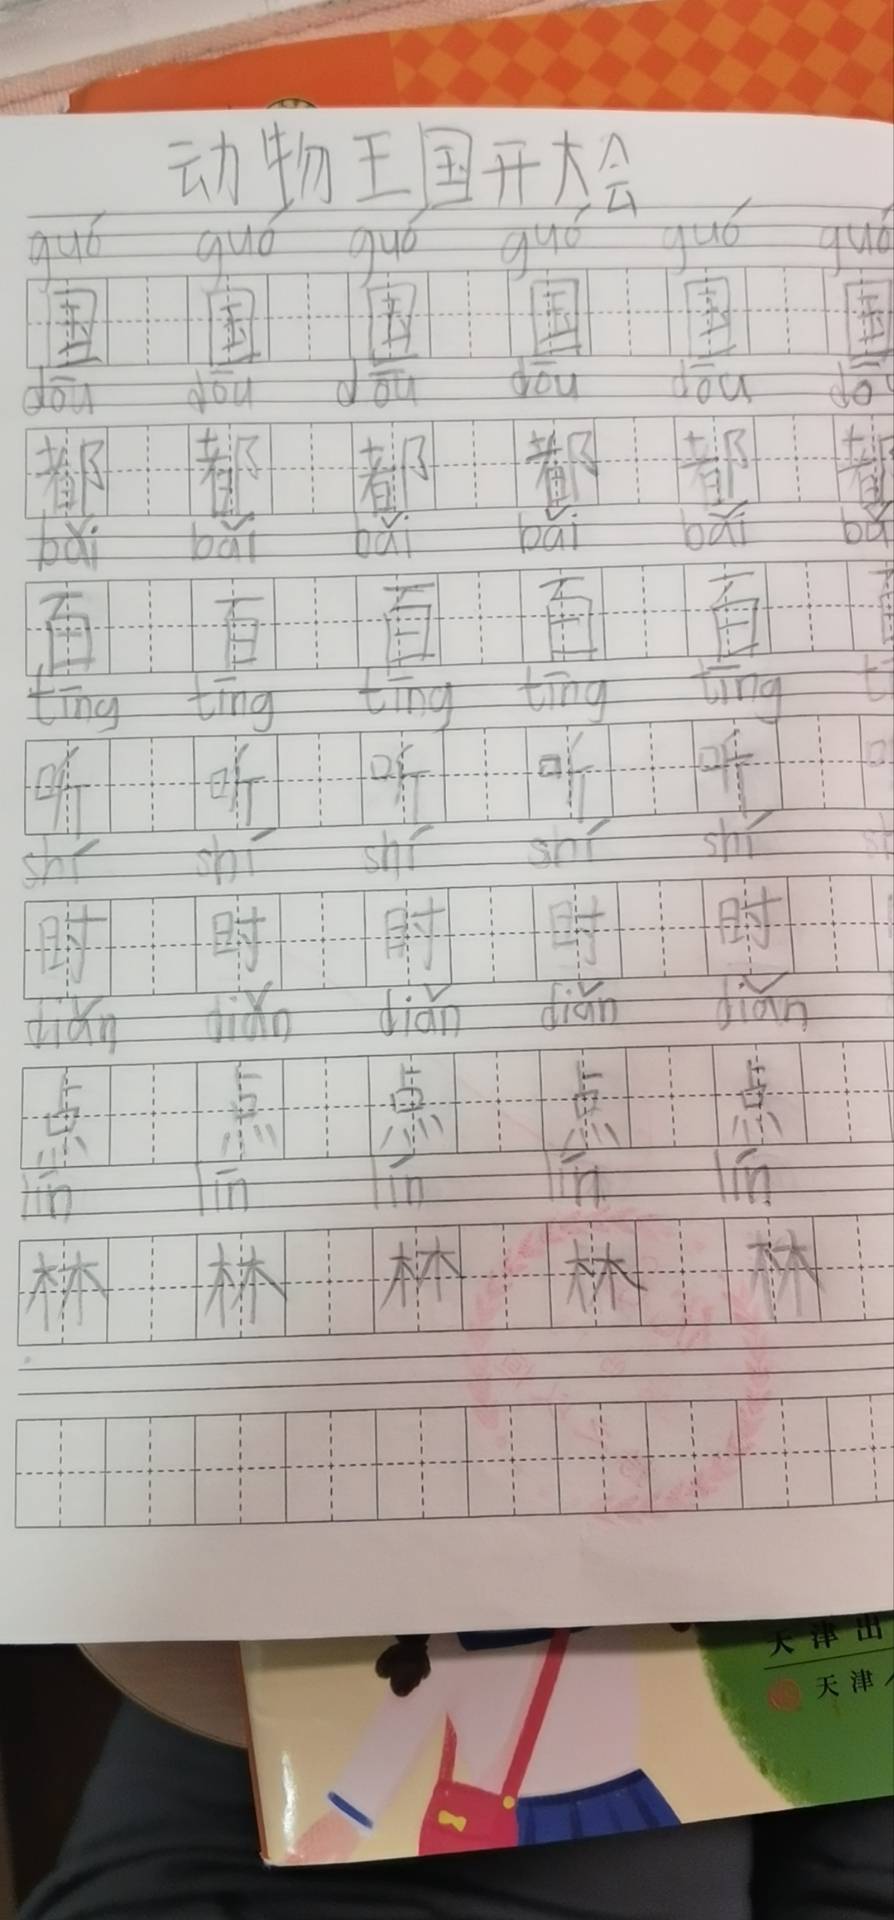 动物王国开大会
guó guó guó guó guó guó
国 国 国 国 国 国
dōu dōu dōu dōu dōu dō
都 都 都 都 都 都
bǎi bǎi bǎi bǎi bǎi bǎ
百 百 百 百 百 百
tīng tīng tīng tīng tīng tī
听 听 听 听 听
shí shí shí shí shí sh
时 时 时 时 时
diǎn diǎn diǎn diǎn diǎn
点 点 点 点 点
lín lín lín lín lín
林 林 林 林 林
天津出
天津人